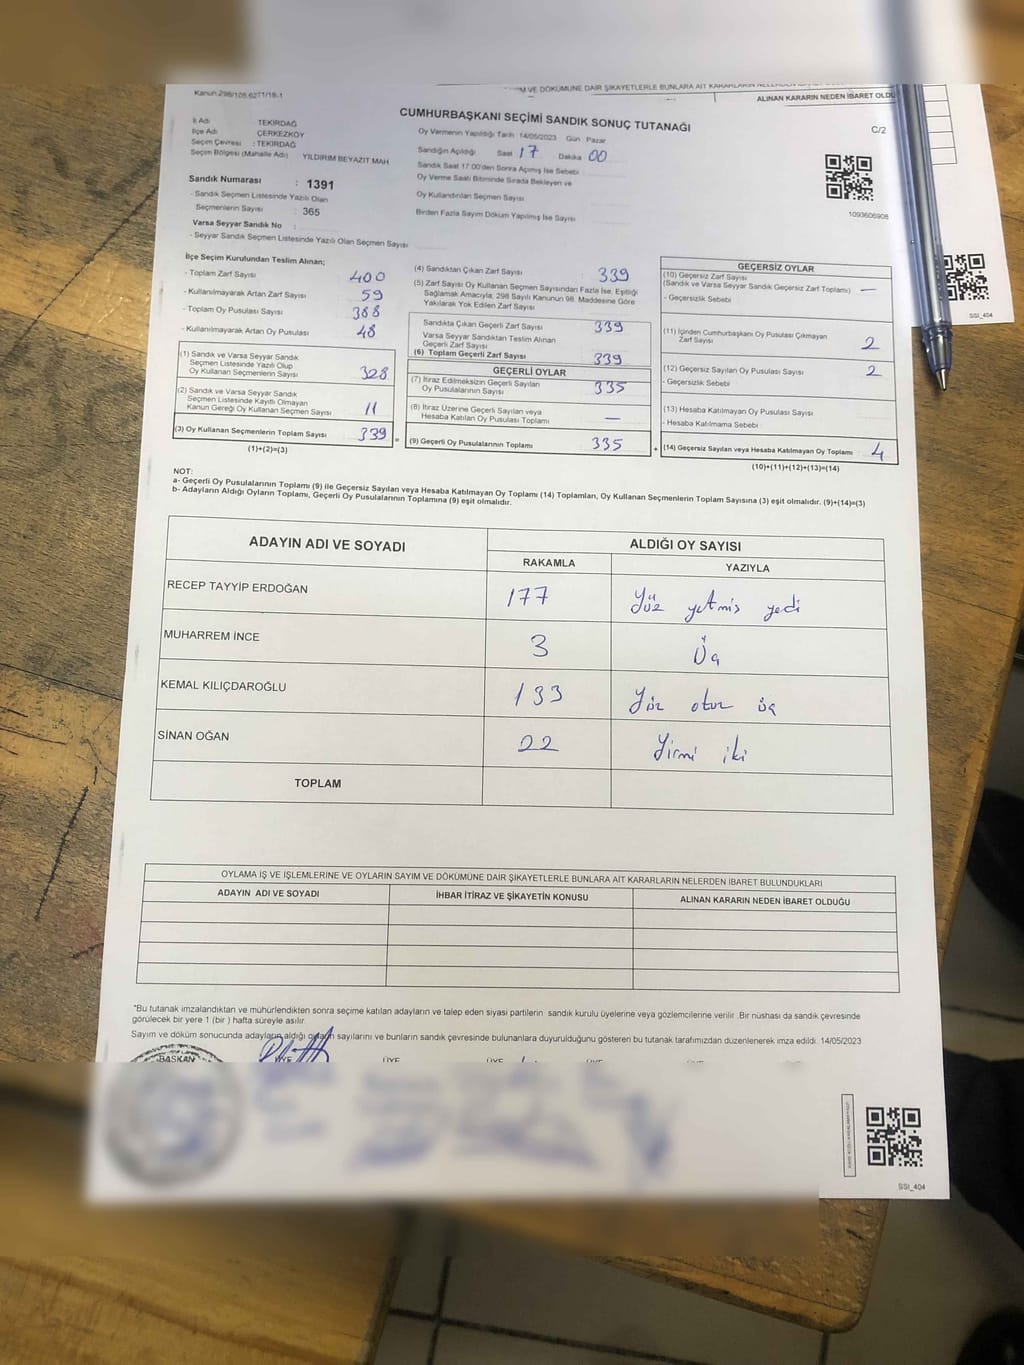 Kanun 298/105 6271/18-1
M VE DÖKÜMÜNE DAİR ŞİKAYETLERLE BUNLARA AİT KARARLARIN NELERDEN
ALINAN KARARIN NEDEN İBARET OLDU
CUMHURBAŞKANI SEÇİMİ SANDIK SONUÇ TUTANAĞI
C/2
İl Adı TEKİRDAĞ
İlçe Adı ÇERKEZKÖY
Seçim Çevresi : TEKİRDAĞ
Seçim Bölgesi (Mahalle Adı) YILDIRIM BEYAZIT MAH
Sandık Numarası : 1391
- Sandık Seçmen Listesinde Yazılı Olan
Seçmenlerin Sayısı : 365
Varsa Seyyar Sandık No :
- Seyyar Sandık Seçmen Listesinde Yazılı Olan Seçmen Sayısı
Oy Vermenin Yapıldığı Tarih : 14/05/2023 Gün Pazar
Sandığın Açıldığı Saat 17 Dakika 00
Sandık Saat 17.00'den Sonra Açılmış İse Sebebi
Oy Verme Saati Bitiminde Sırada Bekleyen ve
Oy Kullandırılan Seçmen Sayısı
Birden Fazla Sayım Döküm Yapılmış İse Sayısı
1093606908
İlçe Seçim Kurulundan Teslim Alınan;
- Toplam Zarf Sayısı 400
- Kullanılmayarak Artan Zarf Sayısı 59
- Toplam Oy Pusulası Sayısı 388
- Kullanılmayarak Artan Oy Pusulası 48
(1) Sandık ve Varsa Seyyar Sandık
Seçmen Listesinde Yazılı Olup
Oy Kullanan Seçmenlerin Sayısı 328
(2) Sandık ve Varsa Seyyar Sandık
Seçmen Listesinde Kayıtlı Olmayan
Kanun Gereği Oy Kullanan Seçmen Sayısı 11
(3) Oy Kullanan Seçmenlerin Toplam Sayısı 339 =
(1)+(2)=(3)
(4) Sandıktan Çıkan Zarf Sayısı : 339
(5) Zarf Sayısı Oy Kullanan Seçmen Sayısından Fazla İse, Eşitliği
Sağlamak Amacıyla, 298 Sayılı Kanunun 98. Maddesine Göre
Yakılarak Yok Edilen Zarf Sayısı
Sandıkta Çıkan Geçerli Zarf Sayısı 339
Varsa Seyyar Sandıktan Teslim Alınan
Geçerli Zarf Sayısı
(6) Toplam Geçerli Zarf Sayısı 339
GEÇERLİ OYLAR
(7) İtiraz Edilmeksizin Geçerli Sayılan
Oy Pusulalarının Sayısı 335
(8) İtiraz Üzerine Geçerli Sayılan veya
Hesaba Katılan Oy Pusulası Toplamı —
(9) Geçerli Oy Pusulalarının Toplamı 335 +
GEÇERSİZ OYLAR
(10) Geçersiz Zarf Sayısı
(Sandık ve Varsa Seyyar Sandık Geçersiz Zarf Toplamı) —
- Geçersizlik Sebebi
(11) İçinden Cumhurbaşkanı Oy Pusulası Çıkmayan
Zarf Sayısı 2
(12) Geçersiz Sayılan Oy Pusulası Sayısı 2
- Geçersizlik Sebebi
(13) Hesaba Katılmayan Oy Pusulası Sayısı
- Hesaba Katılmama Sebebi
(14) Geçersiz Sayılan veya Hesaba Katılmayan Oy Toplamı 4
(10)+(11)+(12)+(13)=(14)
SSI_404
NOT:
a- Geçerli Oy Pusulalarının Toplamı (9) ile Geçersiz Sayılan veya Hesaba Katılmayan Oy Toplamı (14) Toplamları, Oy Kullanan Seçmenlerin Toplam Sayısına (3) eşit olmalıdır. (9)+(14)=(3)
b- Adayların Aldığı Oyların Toplamı, Geçerli Oy Pusulalarının Toplamına (9) eşit olmalıdır.
ADAYIN ADI VE SOYADI ALDIĞI OY SAYISI
RAKAMLA YAZIYLA
RECEP TAYYİP ERDOĞAN 177 Yüz yetmiş yedi
MUHARREM İNCE 3 Üç
KEMAL KILIÇDAROĞLU 133 Yüz otuz üç
SİNAN OĞAN 22 Yirmi iki
TOPLAM
OYLAMA İŞ VE İŞLEMLERİNE VE OYLARIN SAYIM VE DÖKÜMÜNE DAİR ŞİKAYETLERLE BUNLARA AİT KARARLARIN NELERDEN İBARET BULUNDUKLARI
ADAYIN ADI VE SOYADI İHBAR İTİRAZ VE ŞİKAYETİN KONUSU ALINAN KARARIN NEDEN İBARET OLDUĞU
*Bu tutanak imzalandıktan ve mühürlendikten sonra seçime katılan adayların ve talep eden siyasi partilerin sandık kurulu üyelerine veya gözlemcilerine verilir .Bir nüshası da sandık çevresinde
görülecek bir yere 1 (bir ) hafta süreyle asılır.
Sayım ve döküm sonucunda adayların aldığı oyların sayılarını ve bunların sandık çevresinde bulunanlara duyurulduğunu gösteren bu tutanak tarafımızdan düzenlenerek imza edildi. 14/05/2023
BAŞKAN ÜYE ÜYE ÜYE ÜYE
SSI_404